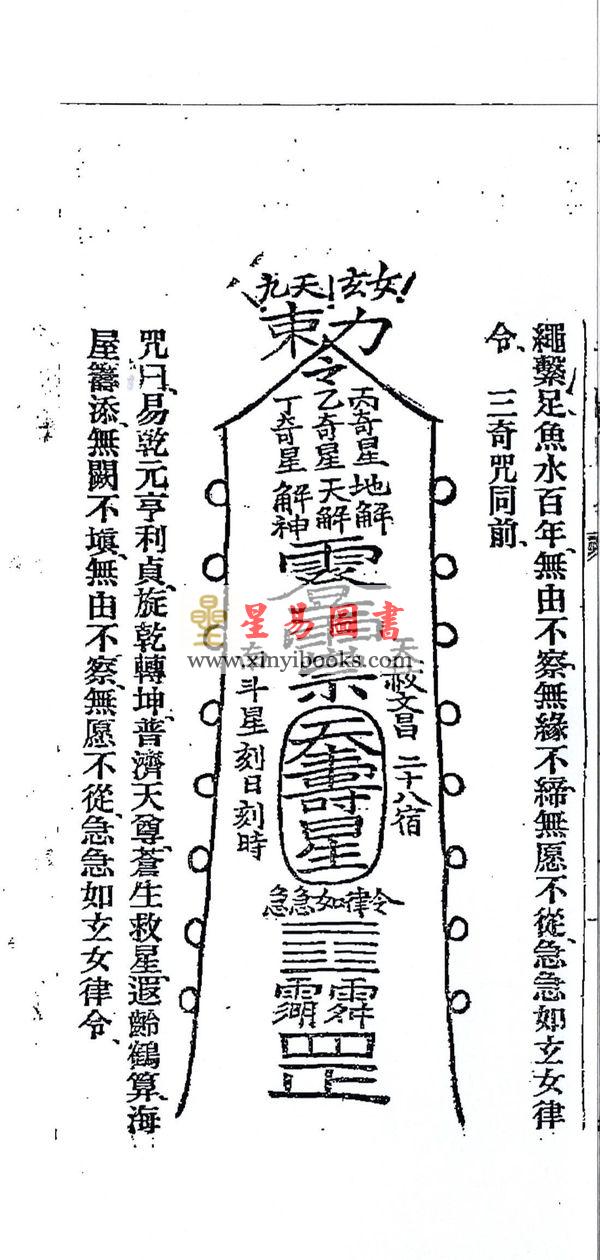 繩繫足、魚水百年、無由不察、無緣不締、無愿不從、急急如玄女律
令、 三奇咒同前、
九天玄女
力束
令
丙奇星 地解
乙奇星 天解
丁奇星 解神
赦文昌 二十八宿
壽星
斗星 刻日刻時
急急如律令
咒曰、易乾元亨利貞、旋乾轉坤、普濟天尊、蒼生救星、遐齡鶴算、海
屋籌添、無闕不塡、無由不察、無愿不從、急急如玄女律令、
星易圖書
www.xinyibooks.com